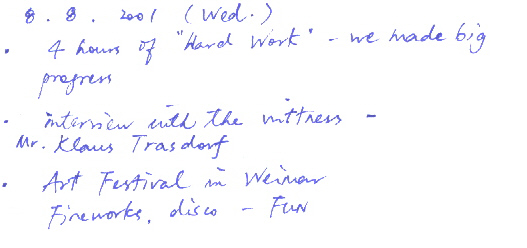 8. 8. 2001 (Wed.)
• 4 hours of "Hard Work" - we made big
progress
• interview with the wittness -
Mr. Klaus Trasdorf
• Art Festival in Weimar
Fireworks, disco - FUN